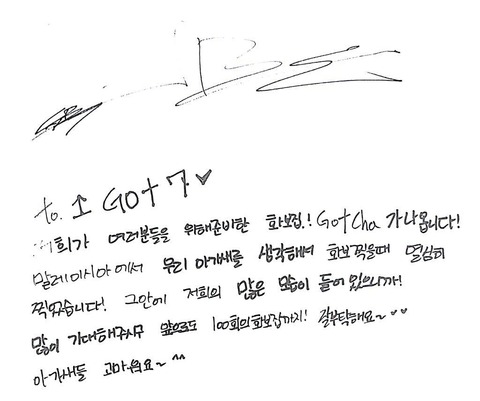 to. I GOT 7 ♥
저희가 여러분들을 위해준비한 화보집! GotCha 가나옵니다!
말레이시아에서 우리 아가새를 생각해며 화보찍을때 열심히
찍었습니다! 그안에 저희의 많은 모습이 들어있으니까!
많이 기대해주시구 앞으로도 100회의화보집까지! 잘부탁해요~ ♡♡
아가새들 고마워요~ ^^